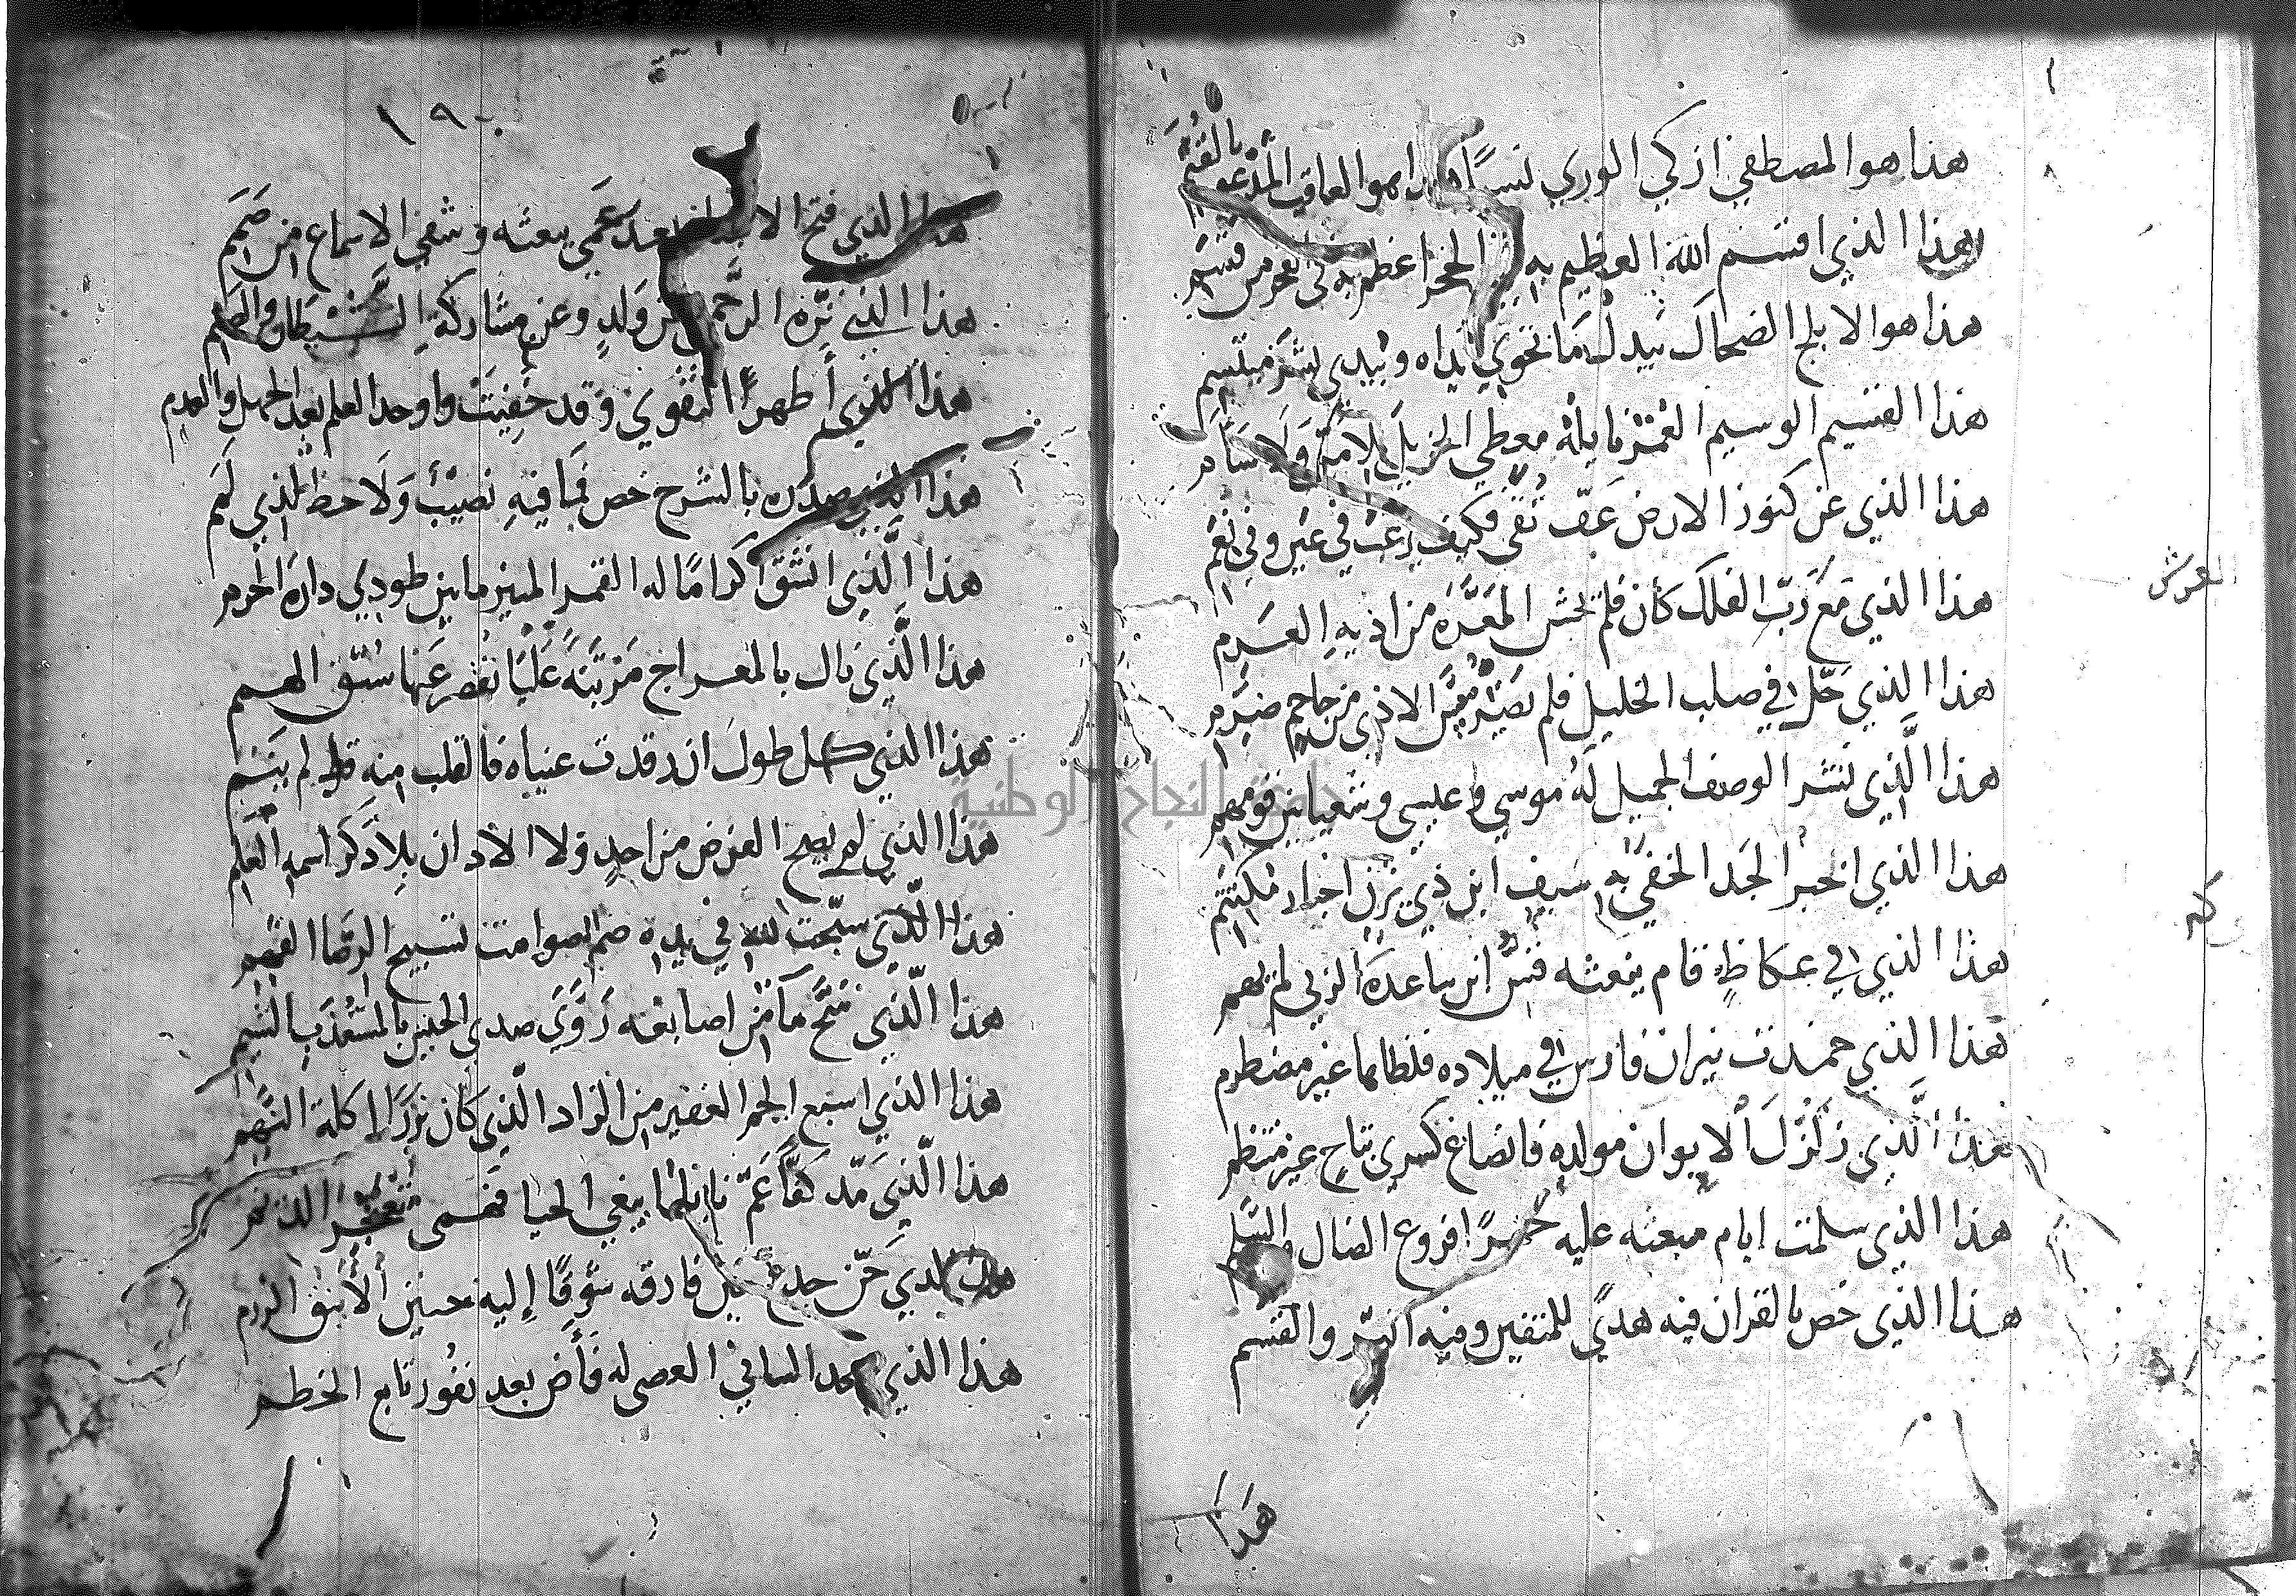 هذا هو المصطفي ازكي الوري نسبًا هذا هو العاقب المدعو بالقثم
هذا الذي اقسم الله العظيم به في الحجر اعظم به في نعر من قسم
هذا هو الابلج الضحاك يبذل ما تحوي يداه ويبدي بشر مبتسم
هذا القسيم الوسيم الغمر نايله معطي الجزيل بلا من ولا سام
هذا الذي عن كنوز الارض عف تقي فكيف يرغب في عير وفي نعم
هذا الذي مع رب الفلك كان فلم يخش المعرة من اذيه العرم
هذا الذي حل في صلب الخليل فلم يصر مس الاذي من جاحم ضرم
هذا الذي نشر الوصف الجميل له موسي وعيسي وشعيا بين قومهم
هذا الذي اخبر الجد الخفي به سيف ابن ذي يزن اخبار مكتتم
هذا الذي في عكاظ قام ينعته قس ابن ساعدة الذي لم يهم
هذا الذي خمدت نيران فارس في ميلاده فلظاها غير مضطرم
هذا الذي زلزل الايوان مولده فانصاع كسري بتاج غير منتظم
هذا الذي سلمت ايام مبعثه عليه جهرًا فروع الضال والسلم
هذا الذي خص بالقران فيه هدي للمتقين وفيه السر والقسم
هذا
العرش
جامعة النجاح الوطنية
١٩٠
هذا الذي فتح الابصار بعد عمي ببعثه وشفي الاسماع من صمم
هذا الذي نزه الرحمن عن ولد وعن مشاركة الشيطان والصنم
هذا الذي أظهر التقوي وقد خفيت واوجد العلم بعد الجهل والعدم
هذا الذي صدره بالشرح خص فما فيه نصيب ولا حظ لذي لمم
هذا الذي انشق اكرامًا له القمر المنير ما بين طودي دارة الحرم
هذا الذي نال بالمعراج مرتبة عليا تقصر عنها سبق الهمم
هذا الذي كل طول ان رقدت عيناه فالقلب منه قط لم ينم
هذا الذي لم يصح الفرض من احد ولا الاذان بلا ذكر اسمه العلم
هذا الذي سبحت لله في يده صم الصوامت تسبيح الرضا الفهم
هذا الذي ثج ما من اصابعه روي صدي الجيش بالمستعذب الشبم
هذا الذي اشبع الجم الغفير من الزاد الذي كان نزرًا اكلة النهم
هذا الذي مد كفا عم نايلها يبغي الحيا فهمي مثعنجر الديم
هذا الذي حن جذع حين فارقه شوقًا إليه حنين الأينق الرزم
هذا الذي سجد الساني العصي له فأض بعد نفور تابع الخطم